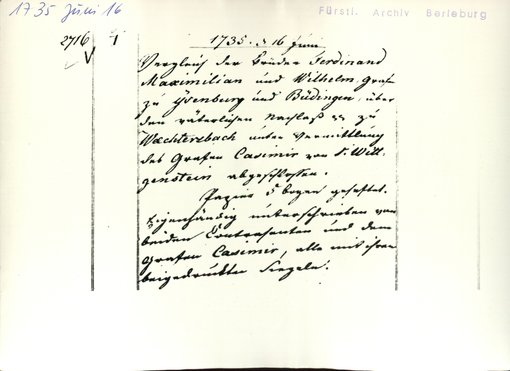 1735 Juni 16
Fürstl. Archiv Berleburg
2716
V
1735. d 16 Juni
Vergleich der Brüder Ferdinand
Maximilian und Wilhelm, Graf
zu Ysenburg und Büdingen, über
den väterlichen Nachlaß zu
Wächtersbach unter Vermittlung
des Grafen Casimir von S. Witt-
genstein abgeschlossen.
Papier 5 bogen geheftet.
Eigenhändig unterschrieben von
beiden Contrahenten und dem
Grafen Casimir, alle mit ihren
beigedruckten Siegeln.